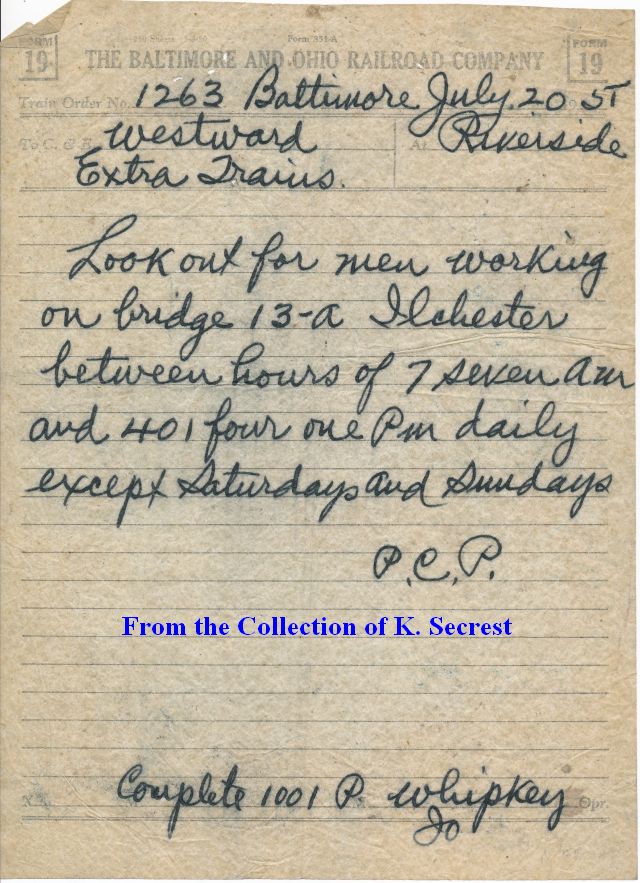 Form 351-A
FORM 19 THE BALTIMORE AND OHIO RAILROAD COMPANY FORM 19
Train Order No. 1263 Baltimore July 20 57
To C. & E. Westward At Riverside
Extra Trains.
Look out for men working
on bridge 13-a Ilchester
between hours of 7 seven am
and 401 four one Pm daily
except Saturdays and Sundays
P.C.P.
From the Collection of K. Secrest
Complete 1001 P. Whipkey Opr.
Jo